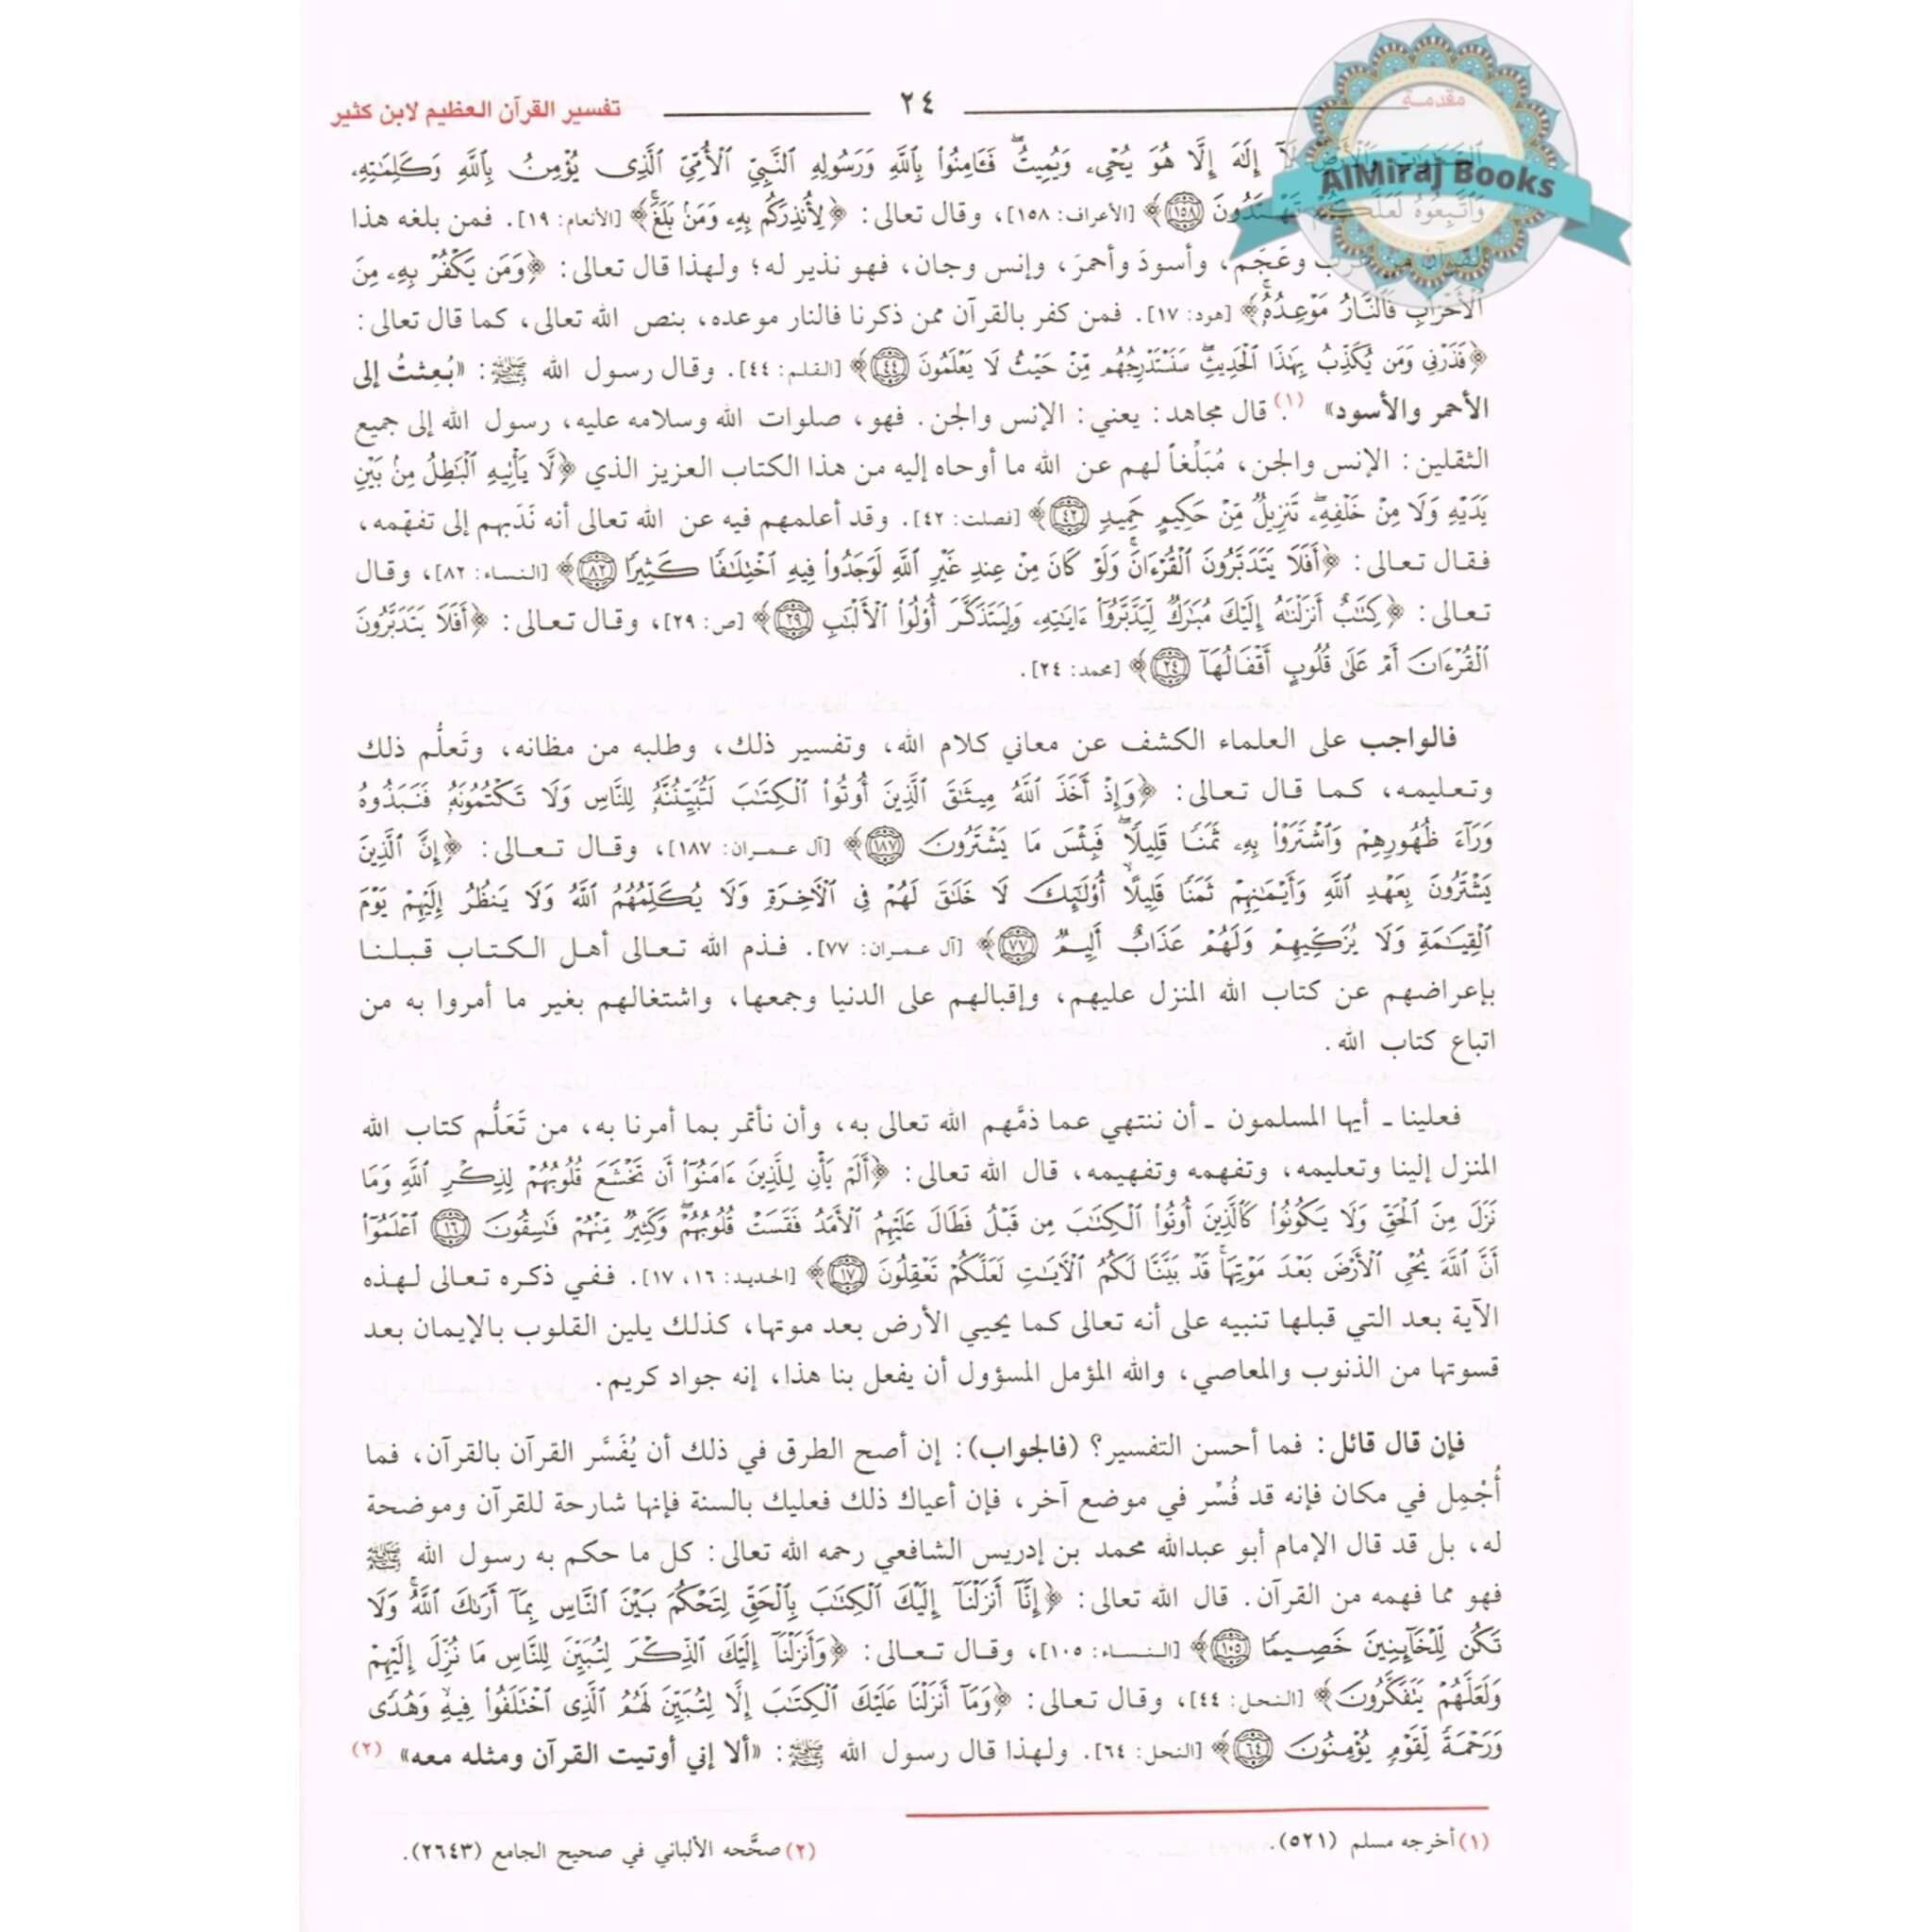 مقدمة ٢٤ تفسير القرآن العظيم لابن كثير
AlMiraj Books
لَآ إِلَٰهَ إِلَّا هُوَ يُحْيِۦ وَيُمِيتُ ۖ فَـَٔامِنُوا۟ بِٱللَّهِ وَرَسُولِهِ ٱلنَّبِىِّ ٱلْأُمِّىِّ ٱلَّذِى يُؤْمِنُ بِٱللَّهِ وَكَلِمَٰتِهِۦ
وَٱتَّبِعُوهُ لَعَلَّكُمْ تَهْتَدُونَ ١٥٨﴾ [الأعراف: ١٥٨]، وقال تعالى: ﴿لِأُنذِرَكُم بِهِۦ وَمَنۢ بَلَغَ ۚ﴾ [الأنعام: ١٩]. فمن بلغه هذا
وعَجَم، وأسودَ وأحمرَ، وإنس وجان، فهو نذير له؛ ولهذا قال تعالى: ﴿وَمَن يَكْفُرْ بِهِۦ مِنَ
ٱلْأَحْزَابِ فَٱلنَّارُ مَوْعِدُهُۥ ۚ﴾ [هود: ١٧]. فمن كفر بالقرآن ممن ذكرنا فالنار موعده، بنص الله تعالى، كما قال تعالى:
﴿فَذَرْنِى وَمَن يُكَذِّبُ بِهَٰذَا ٱلْحَدِيثِ ۖ سَنَسْتَدْرِجُهُم مِّنْ حَيْثُ لَا يَعْلَمُونَ ٤٤﴾ [القلم: ٤٤]. وقال رسول الله ﷺ: «بُعثتُ إلى
الأحمر والأسود» (١). قال مجاهد: يعني: الإنس والجن. فهو، صلوات الله وسلامه عليه، رسول الله إلى جميع
الثقلين: الإنس والجن، مُبَلِّغاً لهم عن الله ما أوحاه إليه من هذا الكتاب العزيز الذي ﴿لَّا يَأْتِيهِ ٱلْبَٰطِلُ مِنۢ بَيْنِ
يَدَيْهِ وَلَا مِنْ خَلْفِهِۦ ۖ تَنزِيلٌ مِّنْ حَكِيمٍ حَمِيدٍ ٤٢﴾ [فصلت: ٤٢]. وقد أعلمهم فيه عن الله تعالى أنه نَدَبهم إلى تفهّمه،
فقال تعالى: ﴿أَفَلَا يَتَدَبَّرُونَ ٱلْقُرْءَانَ ۚ وَلَوْ كَانَ مِنْ عِندِ غَيْرِ ٱللَّهِ لَوَجَدُوا۟ فِيهِ ٱخْتِلَٰفًا كَثِيرًا ٨٢﴾ [النساء: ٨٢]، وقال
تعالى: ﴿كِتَٰبٌ أَنزَلْنَٰهُ إِلَيْكَ مُبَٰرَكٌ لِّيَدَّبَّرُوٓا۟ ءَايَٰتِهِۦ وَلِيَتَذَكَّرَ أُو۟لُوا۟ ٱلْأَلْبَٰبِ ٢٩﴾ [ص: ٢٩]، وقال تعالى: ﴿أَفَلَا يَتَدَبَّرُونَ
ٱلْقُرْءَانَ أَمْ عَلَىٰ قُلُوبٍ أَقْفَالُهَآ ٢٤﴾ [محمد: ٢٤].
فالواجب على العلماء الكشف عن معاني كلام الله، وتفسير ذلك، وطلبه من مظانه، وتَعلُّم ذلك
وتعليمه، كما قال تعالى: ﴿وَإِذْ أَخَذَ ٱللَّهُ مِيثَٰقَ ٱلَّذِينَ أُوتُوا۟ ٱلْكِتَٰبَ لَتُبَيِّنُنَّهُۥ لِلنَّاسِ وَلَا تَكْتُمُونَهُۥ فَنَبَذُوهُ
وَرَآءَ ظُهُورِهِمْ وَٱشْتَرَوْا۟ بِهِۦ ثَمَنًا قَلِيلًا ۖ فَبِئْسَ مَا يَشْتَرُونَ ١٨٧﴾ [آل عمران: ١٨٧]، وقال تعالى: ﴿إِنَّ ٱلَّذِينَ
يَشْتَرُونَ بِعَهْدِ ٱللَّهِ وَأَيْمَٰنِهِمْ ثَمَنًا قَلِيلًا أُو۟لَٰٓئِكَ لَا خَلَٰقَ لَهُمْ فِى ٱلْـَٔاخِرَةِ وَلَا يُكَلِّمُهُمُ ٱللَّهُ وَلَا يَنظُرُ إِلَيْهِمْ يَوْمَ
ٱلْقِيَٰمَةِ وَلَا يُزَكِّيهِمْ وَلَهُمْ عَذَابٌ أَلِيمٌ ٧٧﴾ [آل عمران: ٧٧]. فذم الله تعالى أهل الكتاب قبلنا
بإعراضهم عن كتاب الله المنزل عليهم، وإقبالهم على الدنيا وجمعها، واشتغالهم بغير ما أمروا به من
اتباع كتاب الله.
فعلينا ـ أيها المسلمون ـ أن ننتهي عما ذمَّهم الله تعالى به، وأن نأتمر بما أمرنا به، من تَعَلُّم كتاب الله
المنزل إلينا وتعليمه، وتفهمه وتفهيمه، قال الله تعالى: ﴿أَلَمْ يَأْنِ لِلَّذِينَ ءَامَنُوٓا۟ أَن تَخْشَعَ قُلُوبُهُمْ لِذِكْرِ ٱللَّهِ وَمَا
نَزَلَ مِنَ ٱلْحَقِّ وَلَا يَكُونُوا۟ كَٱلَّذِينَ أُوتُوا۟ ٱلْكِتَٰبَ مِن قَبْلُ فَطَالَ عَلَيْهِمُ ٱلْأَمَدُ فَقَسَتْ قُلُوبُهُمْ ۖ وَكَثِيرٌ مِّنْهُمْ فَٰسِقُونَ ١٦ ٱعْلَمُوٓا۟
أَنَّ ٱللَّهَ يُحْىِ ٱلْأَرْضَ بَعْدَ مَوْتِهَا ۚ قَدْ بَيَّنَّا لَكُمُ ٱلْـَٔايَٰتِ لَعَلَّكُمْ تَعْقِلُونَ ١٧﴾ [الحديد: ١٦، ١٧]. ففي ذكره تعالى لهذه
الآية بعد التي قبلها تنبيه على أنه تعالى كما يحيي الأرض بعد موتها، كذلك يلين القلوب بالإيمان بعد
قسوتها من الذنوب والمعاصي، والله المؤمل المسؤول أن يفعل بنا هذا، إنه جواد كريم.
فإن قال قائل: فما أحسن التفسير؟ (فالجواب): إن أصح الطرق في ذلك أن يُفَسَّر القرآن بالقرآن، فما
أُجْمِل في مكان فإنه قد فُسِّر في موضع آخر، فإن أعياك ذلك فعليك بالسنة فإنها شارحة للقرآن وموضحة
له، بل قد قال الإمام أبو عبدالله محمد بن إدريس الشافعي رحمه الله تعالى: كل ما حكم به رسول الله ﷺ
فهو مما فهمه من القرآن. قال الله تعالى: ﴿إِنَّآ أَنزَلْنَآ إِلَيْكَ ٱلْكِتَٰبَ بِٱلْحَقِّ لِتَحْكُمَ بَيْنَ ٱلنَّاسِ بِمَآ أَرَىٰكَ ٱللَّهُ ۚ وَلَا
تَكُن لِّلْخَآئِنِينَ خَصِيمًا ١٠٥﴾ [النساء: ١٠٥]، وقال تعالى: ﴿وَأَنزَلْنَآ إِلَيْكَ ٱلذِّكْرَ لِتُبَيِّنَ لِلنَّاسِ مَا نُزِّلَ إِلَيْهِمْ
وَلَعَلَّهُمْ يَتَفَكَّرُونَ﴾ [النحل: ٤٤]، وقال تعالى: ﴿وَمَآ أَنزَلْنَا عَلَيْكَ ٱلْكِتَٰبَ إِلَّا لِتُبَيِّنَ لَهُمُ ٱلَّذِى ٱخْتَلَفُوا۟ فِيهِ ۙ وَهُدًى
وَرَحْمَةً لِّقَوْمٍ يُؤْمِنُونَ ٦٤﴾ [النحل: ٦٤]. ولهذا قال رسول الله ﷺ: «ألا إني أوتيت القرآن ومثله معه» (٢)
(١) أخرجه مسلم (٥٢١). (٢) صحَّحه الألباني في صحيح الجامع (٢٦٤٣).